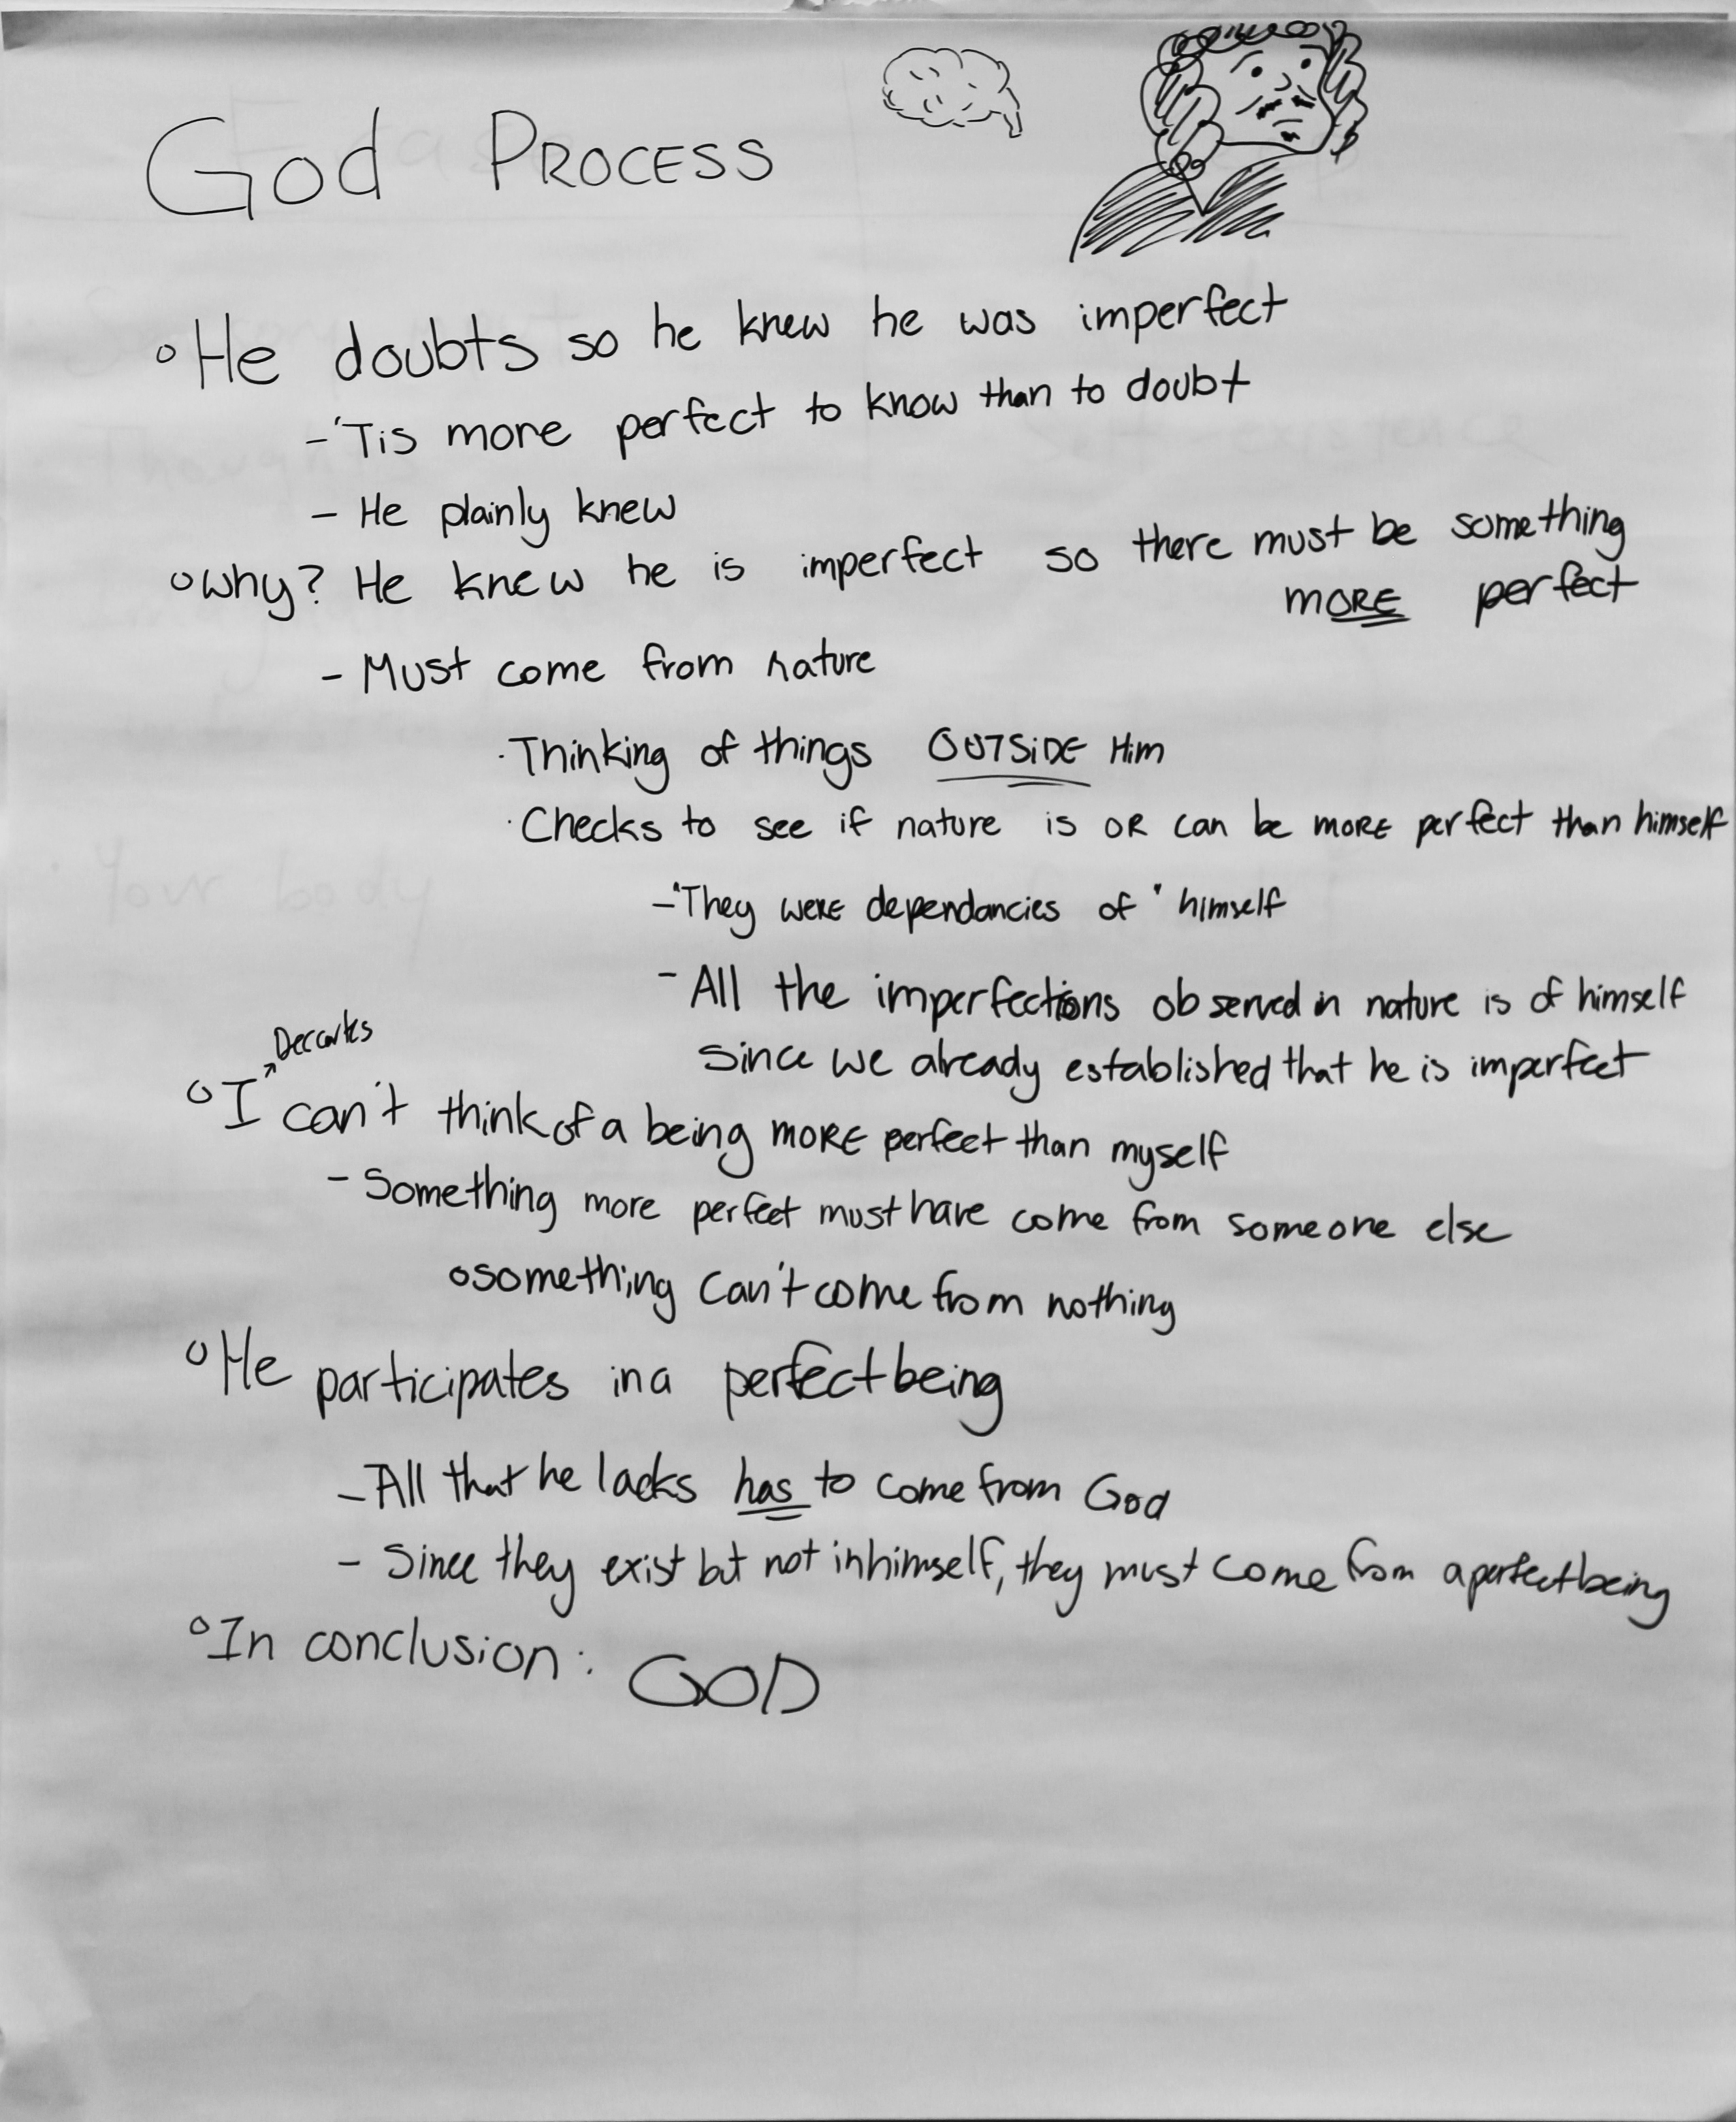 God Process
°He doubts so he knew he was imperfect
-'Tis more perfect to know than to doubt
- He plainly knew
°Why? He knew he is imperfect so there must be something
MORE perfect
- Must come from nature
·Thinking of things OUTSIDE Him
·Checks to see if nature is OR can be MORE perfect than himself
-"They were dependancies of" himself
- All the imperfections observed in nature is of himself
since we already established that he is imperfect
Decartes
°I can't think of a being MORE perfect than myself
- Something more perfect must have come from someone else
°something can't come from nothing
°He participates in a perfect being
-All that he lacks has to come from God
- Since they exist but not in himself, they must come from a perfect being
°In conclusion: GOD
Your body